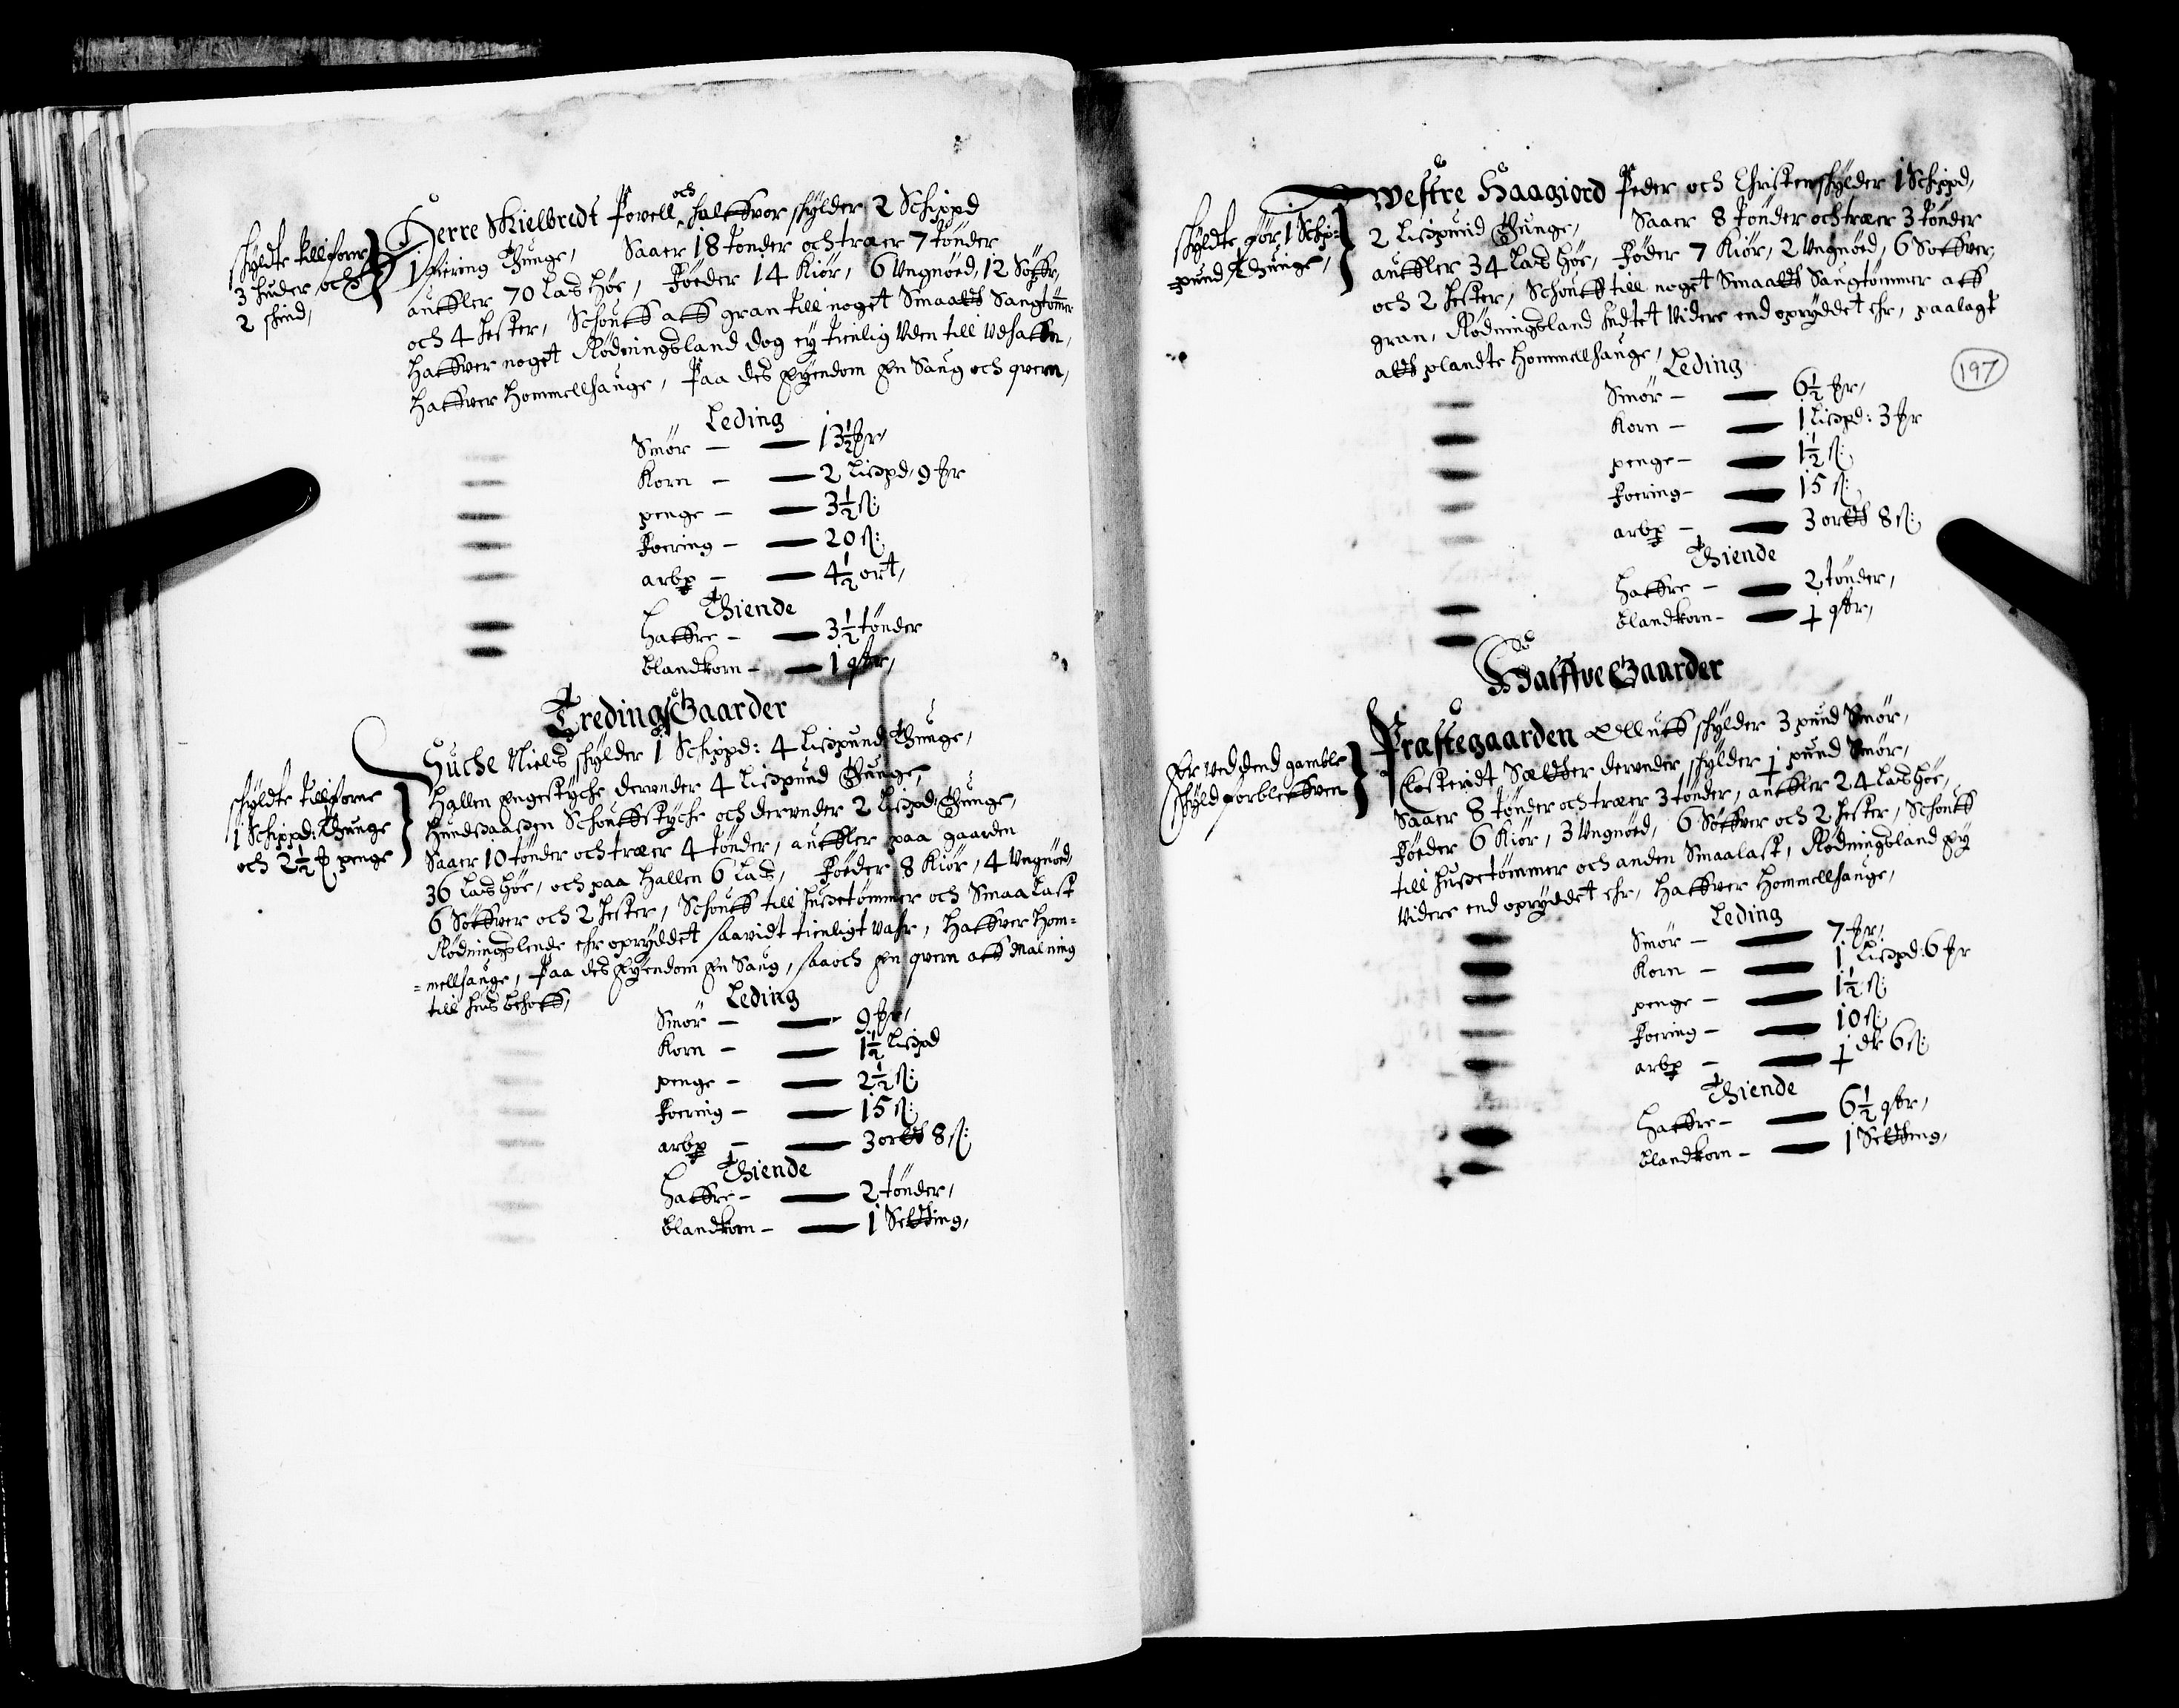 skylte tillforne
3 huder och
2 skind,
Nerre Skielbredt Povell och Halffvor skylder 2 Schippd
1 fiering Thunge, Saaer 18 tønder och træer 7 tønder
auffler 70 Las Høe, Føeder 14 Kiør, 6 Ungnøed, 12 Søffr,
och 4 Hester, Schouff aff gran till noget Smaalt Saugtømmer
Haffver noget Rødningsland dog ey tienlig uden till udsætten,
Haffver Hommellhauge, Paa des Eyendom En Saug och qvern,
Leding
Smør — 13½ Mr,
Korn — 2 Lispd, 9 Mr
penge — 3½ ß:
Foering — 20 ß:
arb: p — 4½ ort,
Thiende
Haffre — 3½ tønder
blandkorn — 1 qtr,
Tredings Gaarder
skylte tillforne
1 Schippd: Thunge
och 2½ ß penge
Huche Niels skylder 1 Schippd: 4 Lispund Thunge,
Hallen Engestyche derunder 4 Lispund Thunge,
Hundsaasen Schouffstyche och derunder 2 Lispd: Thunge,
Saaer 10 tønder och træer 4 tønder, auffler paa gaarden
36 Las Høe, och paa Hallen 6 Las, Føeder 8 Kiør, 4 Ungnøed,
6 Søffver och 2 Hester, Schouff till Husetømmer och Smaa Last
Rødningslende ehr opryddet saavidt tienligt vahr, Haffver Hom=
=mellhauge, Paa des Eyendom En Saug, saaoch En qvern aff Malning
till Hus behoff,
Leding
Smør — 9 Mr,
Korn — 1½ Lispd
penge — 2½ ß:
Foering — 15 ß:
arb: p — 3 ortt 8 ß:
Thiende
Haffre — 2 tønder,
blandkorn — 1 Setting,
skylte før 1 Schip=
pund Thunge,
Westre Haagiord Peder och Christen skylder 1 Schippd,
2 Lispund Thunge, Saaer 8 tønder och træer 3 tønder
auffler 34 Las Høe, Føder 7 Kiør, 2 Ungnøed, 6 Søffver,
och 2 Hester, Schouff till noget Smaalt Saugtømmer aff
gran, Rødningsland Indtet Videre end opryddet ehr, paalagt
att plandte Hommellhauge,
197
Leding
Smør — 6½ Mr,
Korn — 1 Lispd: 3 Mr
penge — 1½ ß:
Foering — 15 ß:
arb: p — 3 ortt 8 ß:
Thiende
Haffre — 2 tønder,
blandkorn — 1 qtr,
Halffve Gaarder
Er ved dend gamble
skyld forbleffven
Præstegaarden Olluff skylder 3 pund Smør,
Closteridt Sætter derunder skylder 1 pund Smør,
Saaer 8 tønder och træer 3 tønder, auffler 24 Las Høe,
Føeder 6 Kiør, 3 Ungnøed, 6 Søffver och 2 Hester, Schouff
till Husetømmer och anden Smaalast, Rødningsland Ey
Videre end opryddet ehr, Haffver Hommellhauge,
Leding
Smør — 7 Mr,
Korn — 1 Lispd: 6 Mr
penge — 1½ ß:
Foering — 10 ß:
arb: p — 1 dlr 6 ß:
Thiende
Haffre — 6½ qtr,
blandkorn — 1 Setting,